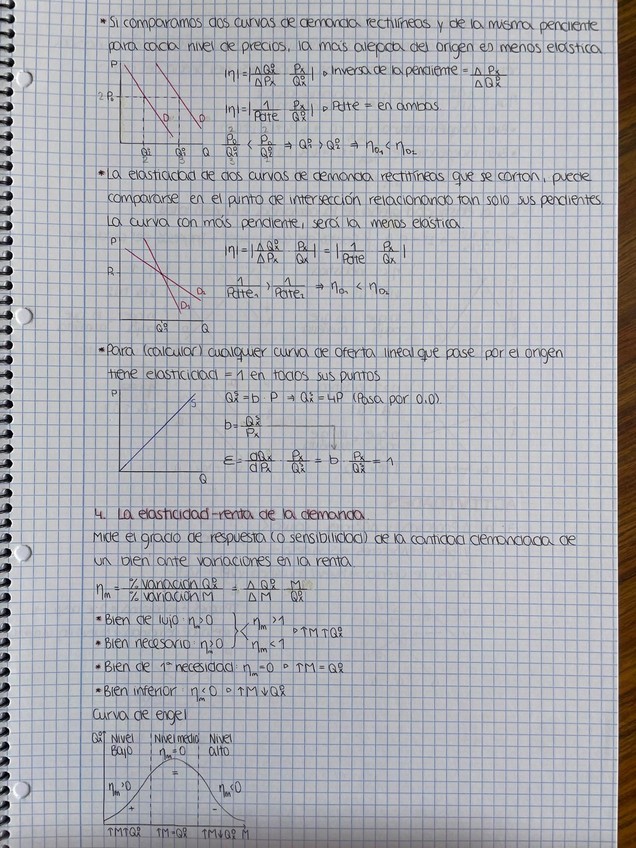 • Si comparamos dos curvas de demanda rectilíneas y de la misma pendiente
para cada nivel de precios, la más alejada del origen es menos elástica.
P
2=P₀
D D
Q₁ Q₂ Q
|η|=|ΔQx/ΔPx · Px/Qx| → Inversa de la pendiente = ΔPx/ΔQx
|η|=|1/Pdte · Px/Qx| → Pdte = en ambas
P₀/Q₂ < P₀/Q₁ ⇒ Q₂ > Q₁ ⇒ η₀₁ < η₀₂
• La elasticidad de dos curvas de demanda rectilíneas que se cortan, puede
compararse en el punto de intersección relacionando tan solo sus pendientes.
La curva con más pendiente, será la menos elástica.
P
D₂
D₁
Q
|η|=|ΔQx/ΔPx · Px/Qx| = |1/Pdte · Px/Qx|
1/Pdte₁ > 1/Pdte₂ ⇒ η₀₁ < η₀₂
• Para (calcular) cualquier curva de oferta lineal que pase por el origen
tiene elasticidad = 1 en todos sus puntos
P
S
Q
Qx = b · P → Qx = 4P (Pasa por 0,0)
b = Qx/Px
ε = dQx/dPx · Px/Qx = b · Px/Qx = 1
4. La elasticidad-renta de la demanda
Mide el grado de respuesta (o sensibilidad) de la cantidad demandada de
un bien ante variaciones en la renta
ηm = % variación Qx / % variación M = ΔQx/ΔM · M/Qx
• Bien de lujo ηm>0 } ηm>1
• Bien necesario ηm>0 } ηm<1 → ↑M↑Qx
• Bien de 1ª necesidad ηm=0 → ↑M=Qx
• Bien inferior ηm<0 → ↑M↓Qx
Curva de engel
Qx Nivel Bajo Nivel medio Nivel alto
ηm=0
=
ηm>0 ηm<0
+ -
↑M↑Qx ↑M=Qx ↑M↓Qx M